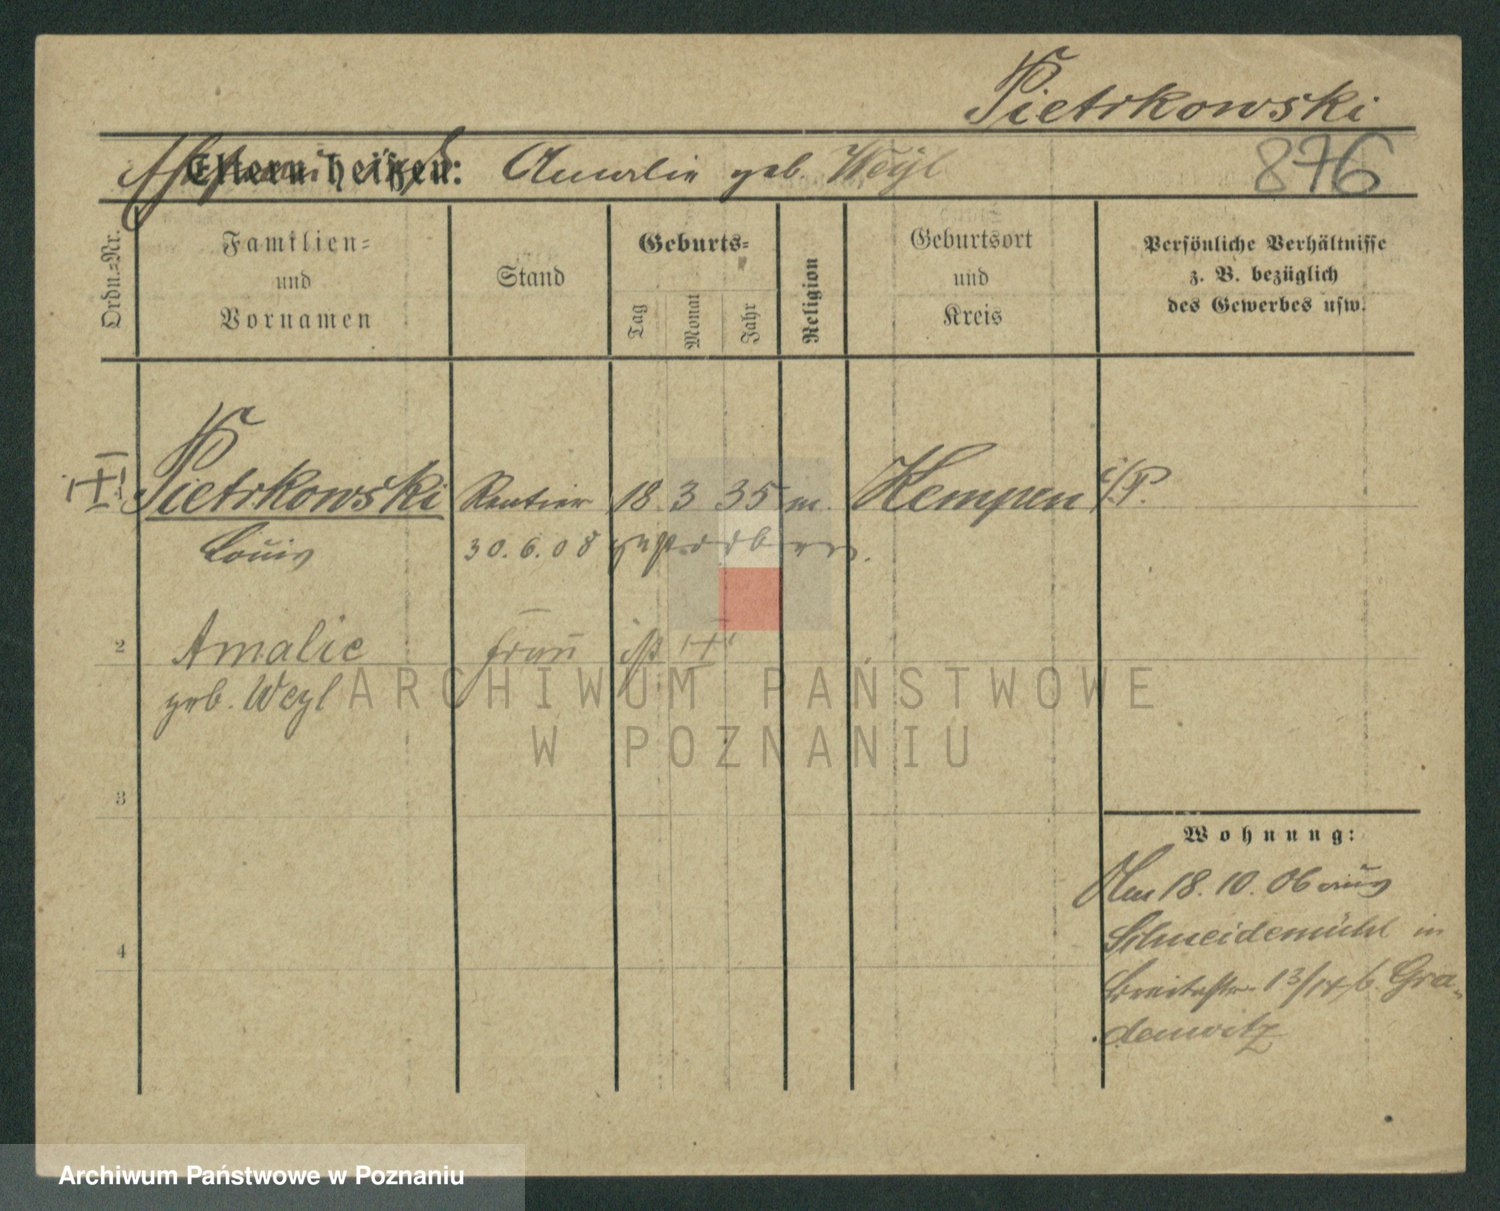 Pietrkowski
Eltern heißen: Amalie geb. Weyl
876
Ordn.=Nr.
Familien=
und
Vornamen
Stand
Geburts=
Tag
Monat
Jahr
Religion
Geburtsort
und
Kreis
Persönliche Verhältnisse
z. B. bezüglich
des Gewerbes usw.
Pietrkowski Rentier 18 3 35 m. Kempen i/P.
Louis 30.6.08 gestorben.
2 Amalie Frau ist
geb. Weyl
ARCHIWUM PAŃSTWOWE
W POZNANIU
3
Wohnung:
Am 18.10.06 aus
Schneidemühl in
4
Breitestr. 13/14 b. Gra-
denwitz
Archiwum Państwowe w Poznaniu